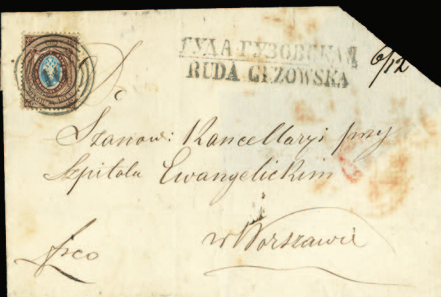 РУДА ГУЗОВСКАЯ
RUDA GUZOWSKA
6/12
Szanow: Kancellaryi przy
Szpitalu Ewangelickim
w Warszawie
frco